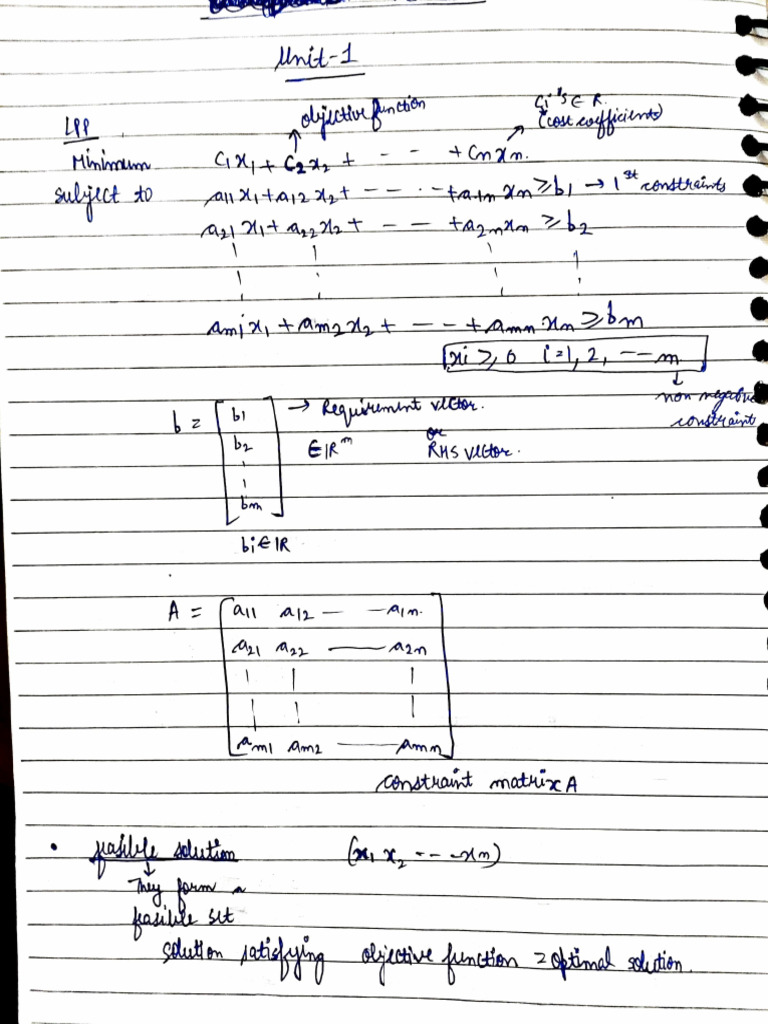 Unit-1
objective function
ci's ∈ R.
(cost coefficients)
LPP
Minimum c1x1 + c2x2 + - - - + cnxn.
subject to a11x1 + a12x2 + - - - - + a1nxn ≥ b1 → 1st constraints
a21x1 + a22x2 + - - - + a2nxn ≥ b2
am1x1 + am2x2 + - - - + amnxn ≥ bm
xi ≥ 0 i=1, 2, - - - n
non negative
constraint
b = [b1 → Requirement vector.
b2 ∈ IR^m or
RHS vector.
bm]
bi ∈ IR
A = [a11 a12 - - a1n
a21 a22 — a2n
am1 am2 — amn]
constraint matrix A
• feasible solution (x1 x2 - - - xn)
They form a
feasible set
solution satisfying objective function = optimal solution.